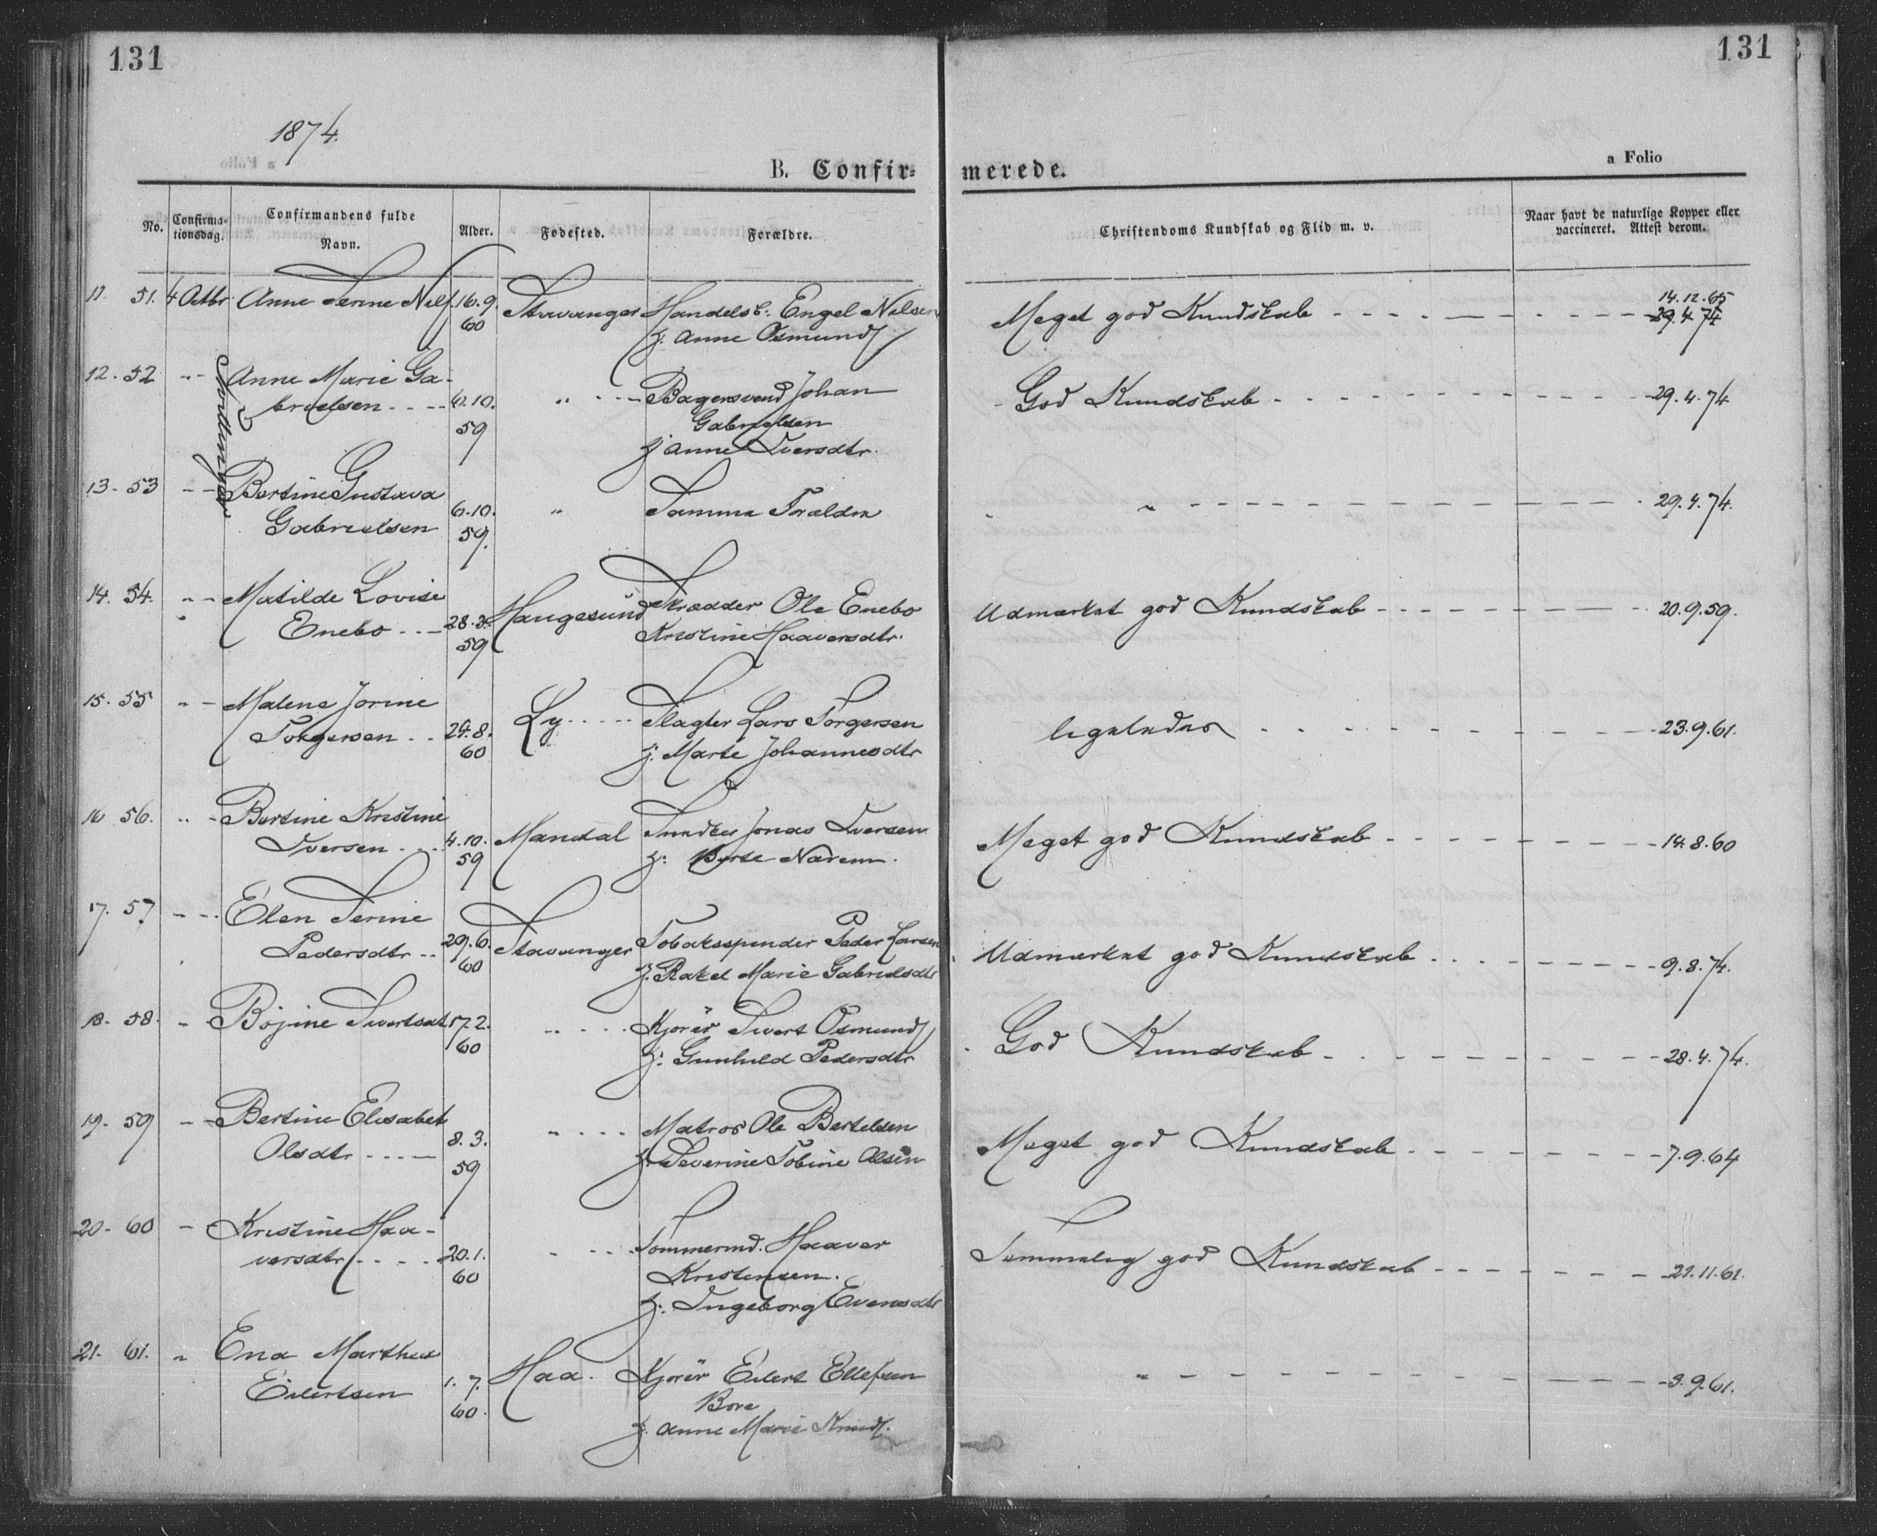 131
131
1874.
a Folio
B. Confir-
merede.
No.
Confirma-
tionsdag.
Confirmandens fulde
Navn.
Alder.
Fødested.
Forældre.
Christendoms Kundskab og Flid m. v.
Naar havt de naturlige Kopper eller
vaccineret. Attest derom.
11. 51. 4 Octbr. Anne Serine Nels. 16.9. Stavanger Handelsb. Engel Nelsen Meget god Kundskab - - - - 14.12.65
60 j. Anne Osmunds 29.4.74
12. 52 " - Anne Marie Ga-
brielsen - - - 6.10. " - - - Bagersvend Johan God Kundskab - - - - 29.4.74.
59 Gabrielsen
j. Anne Iversdtr.
Tvillinger
13. 53 - - Bertine Gustava
Gabrielsen 6.10. " Samme Forældre " - - - - 29.4.74.
59.
14. 54. - - Matilde Lovise
Enebo - - 28.3. Haugesund Skrædder Ole Enebo Udmærket god Kundskab - - - - 20.9.59.
59 Kristine Haaversdtr.
15. 55 " - Malene Jorine
Torgersen - - 29.8. Ly - - - Slagter Lars Torgersen ligeledes - - - - 23.9.61.
60 j. Marte Johannesdtr
16 56. " - Bertine Kristine
Iversen - - 4.10. Mandal Snedker Jonas Iversen Meget god Kundskab - - - - 14.8.60
59 j. Berte
17. 57 - - Elen Serine
Pedersdtr - - 29.6. Stavanger Tobaksspinder Peder Larsen Udmærket god Kundskab - - - - 9.8.74.
60 j. Rakel Marie Gabrielsdtr
18. 58. - Bojine Sivertsdt. 17.2. " - - - Kjører Sivert Osmunds God Kundskab - - - - 28.4.74.
60 j. Gunhild Pedersdtr
19. 59 - - Bertine Elisabet
Olsdtr - - - 8.3. " - - - Matros Ole Bertelsen Meget god Kundskab - - - - 7.9.64
59 j. Severine Tobine Olsen
20. 60 - Kristine Haa-
versdtr - - - 20.1. " - - - Tømmermd. Haaver Temmelig god Kundskab - - - - 21.11.61.
60 Kristensen.
j. Ingeborg Evensdtr
21. 61. " Ena Marthea
Eilertsen 1.7. Haa. Kjører Eilert Ellefsen " - - - - 3.9.61.
60. Bore
j. Anne Marie Knuds.